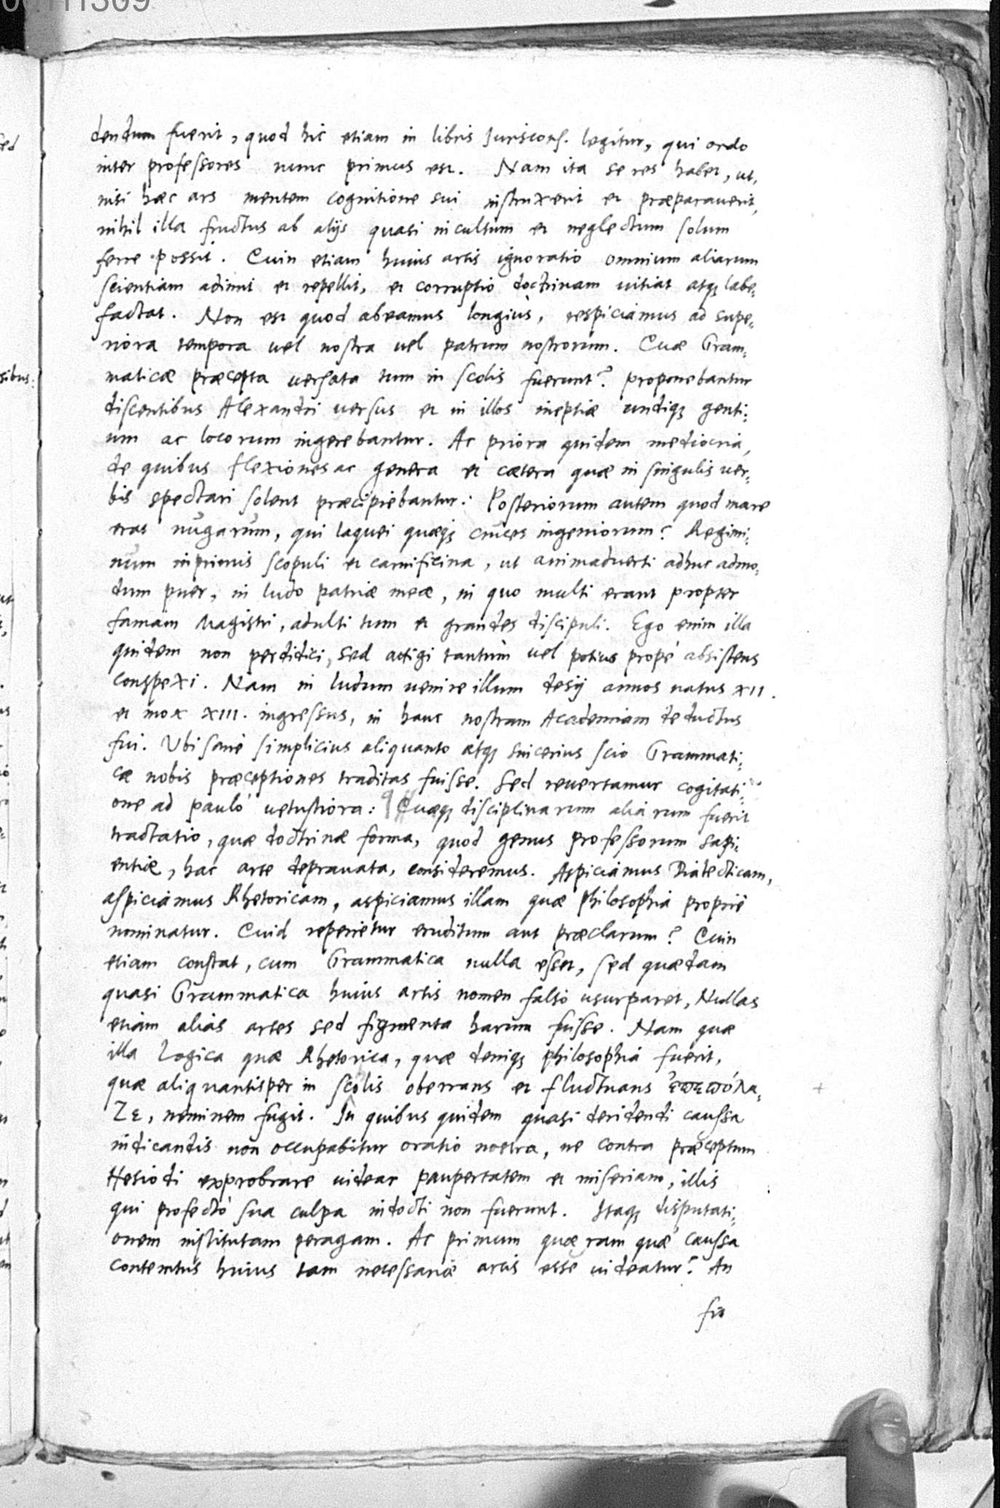 dendum fuerit, quod hic etiam in libris Juriscons. legitur, qui ordo
inter professores nunc primus est. Nam ita se res habet, ut,
nisi hæc ars mentem cognitione sui instruxerit et præparaverit,
nihil illa fructus ab alijs quasi incultum et neglectum solum
ferre possit. Cuin etiam huius artis ignoratio omnium aliarum
scientiam adimit et repellit, et corruptio doctrinam vitiat atq; labe,
factat. Non est quod abeamus longius, respiciamus ad supe,
riora tempora vel nostra vel patrum nostrorum. Cuæ Gram,
maticæ præcepta versata tum in scolis fuerunt? proponebantur
discentibus Alexandri versus et in illos ineptiæ undiq; genti,
um ac locorum ingerebantur. Ac priora quidem mediocria,
de quibus flexiones ac genera et cætera quæ in singulis ver,
bis spectari solent præcipiebantur: Posteriorum autem quod mare
erat nugarum, qui laquei quæq; cruces ingeniorum? Regimi,
num inprimis scopuli et carnificina, ut animadverti adhuc admo,
dum puer, in ludo patriæ meæ, in quo multi erant propter
famam Magistri, adulti tum et grandes discipuli. Ego enim illa
quidem non perdidici, sed attigi tantum vel potius prope absistens
conspexi. Nam in ludum venire illum desij annos natus XII.
et mox XIII. ingressus, in hanc nostram Academiam deductus
fui. Ubi sane simplicius aliquanto atq; sincerius scio Grammati,
cæ nobis præceptiones traditas fuisse. Sed revertamur cogitati,
one ad paulo vetustiora: Cuæq; disciplinarum aliarum fuerit
tractatio, quæ doctrinæ forma, quod genus professorum sapi,
entiæ, hac arte depravata, consideremus. Aspiciamus Dialecticam,
aspiciamus Rhetoricam, aspiciamus illam quæ philosophia proprie
nominatur. Cuid reperietur eruditum aut præclarum? Cuin
etiam constat, cum Grammatica nulla esset, sed quædam
quasi Grammatica huius artis nomen falso usurparet, Nullas
etiam alias artes sed figmenta harum fuisse. Nam quæ
illa Logica quæ Rhetorica, quæ deniq; philosophia fuerit,
quæ aliquantisper in scolis oberrans et fluctuans ἐπεπόλα,
ζε, neminem fugit. In quibus quidem quasi deridendi caussa
indicandis non occupabitur oratio nostra, ne contra præceptum
Hesiodi exprobrare videar paupertatem et miseriam, illis
qui profecto sua culpa indocti non fuerunt. Itaq; disputati,
onem institutam peragam. Ac primum quæram quæ caussa
contemtus huius tam necessariæ artis esse videatur? An